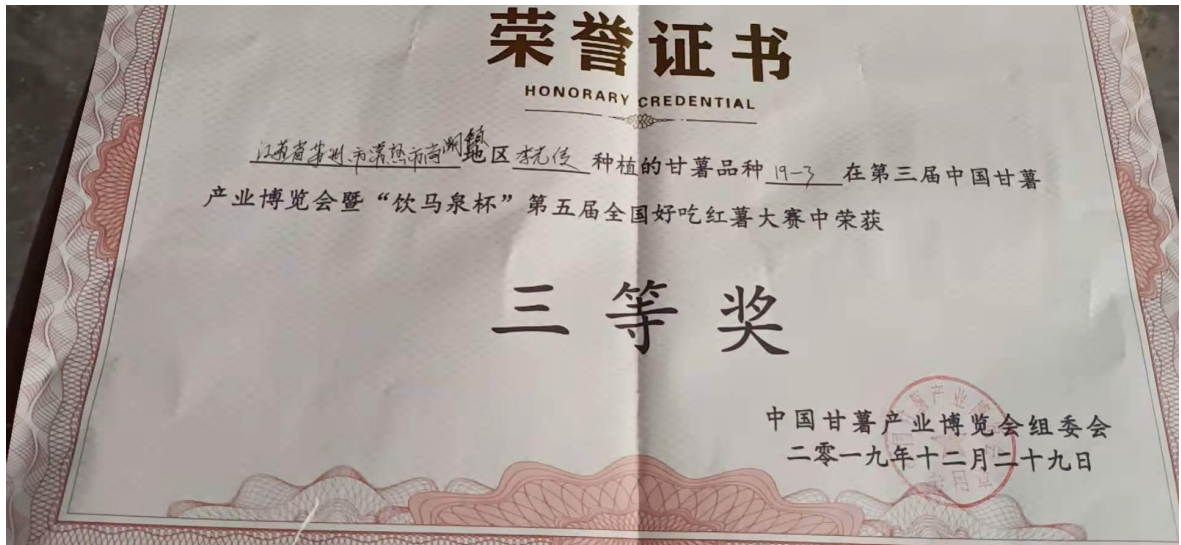 荣誉证书
HONORARY CREDENTIAL
江苏省苏州市常熟市尚湖镇地区李光传种植的甘薯品种 19-3 在第三届中国甘薯
产业博览会暨“饮马泉杯”第五届全国好吃红薯大赛中荣获
三等奖
中国甘薯产业博览会组委会
二零一九年十二月二十九日